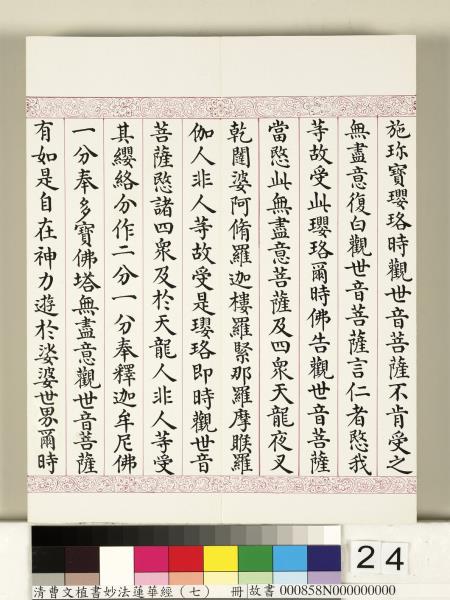 施珎寶瓔珞時觀世音菩薩不肯受之
無盡意復白觀世音菩薩言仁者愍我
等故受此瓔珞爾時佛告觀世音菩薩
當愍此無盡意菩薩及四衆天龍夜叉
乾闥婆阿脩羅迦樓羅緊那羅摩睺羅
伽人非人等故受是瓔珞即時觀世音
菩薩愍諸四衆及於天龍人非人等受
其纓絡分作二分一分奉釋迦牟尼佛
一分奉多寶佛塔無盡意觀世音菩薩
有如是自在神力遊於娑婆世界爾時
24
清曹文植書妙法蓮華經（七） 冊 故書 000858N000000000